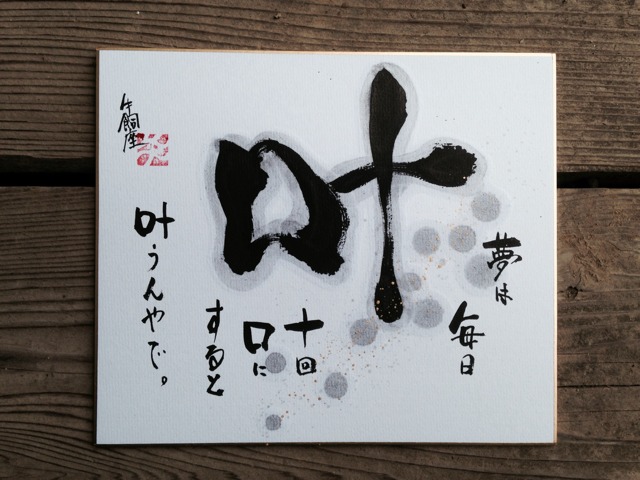 叶
夢は
毎日
十回
口に
すると
叶うんやで。
牛飼座